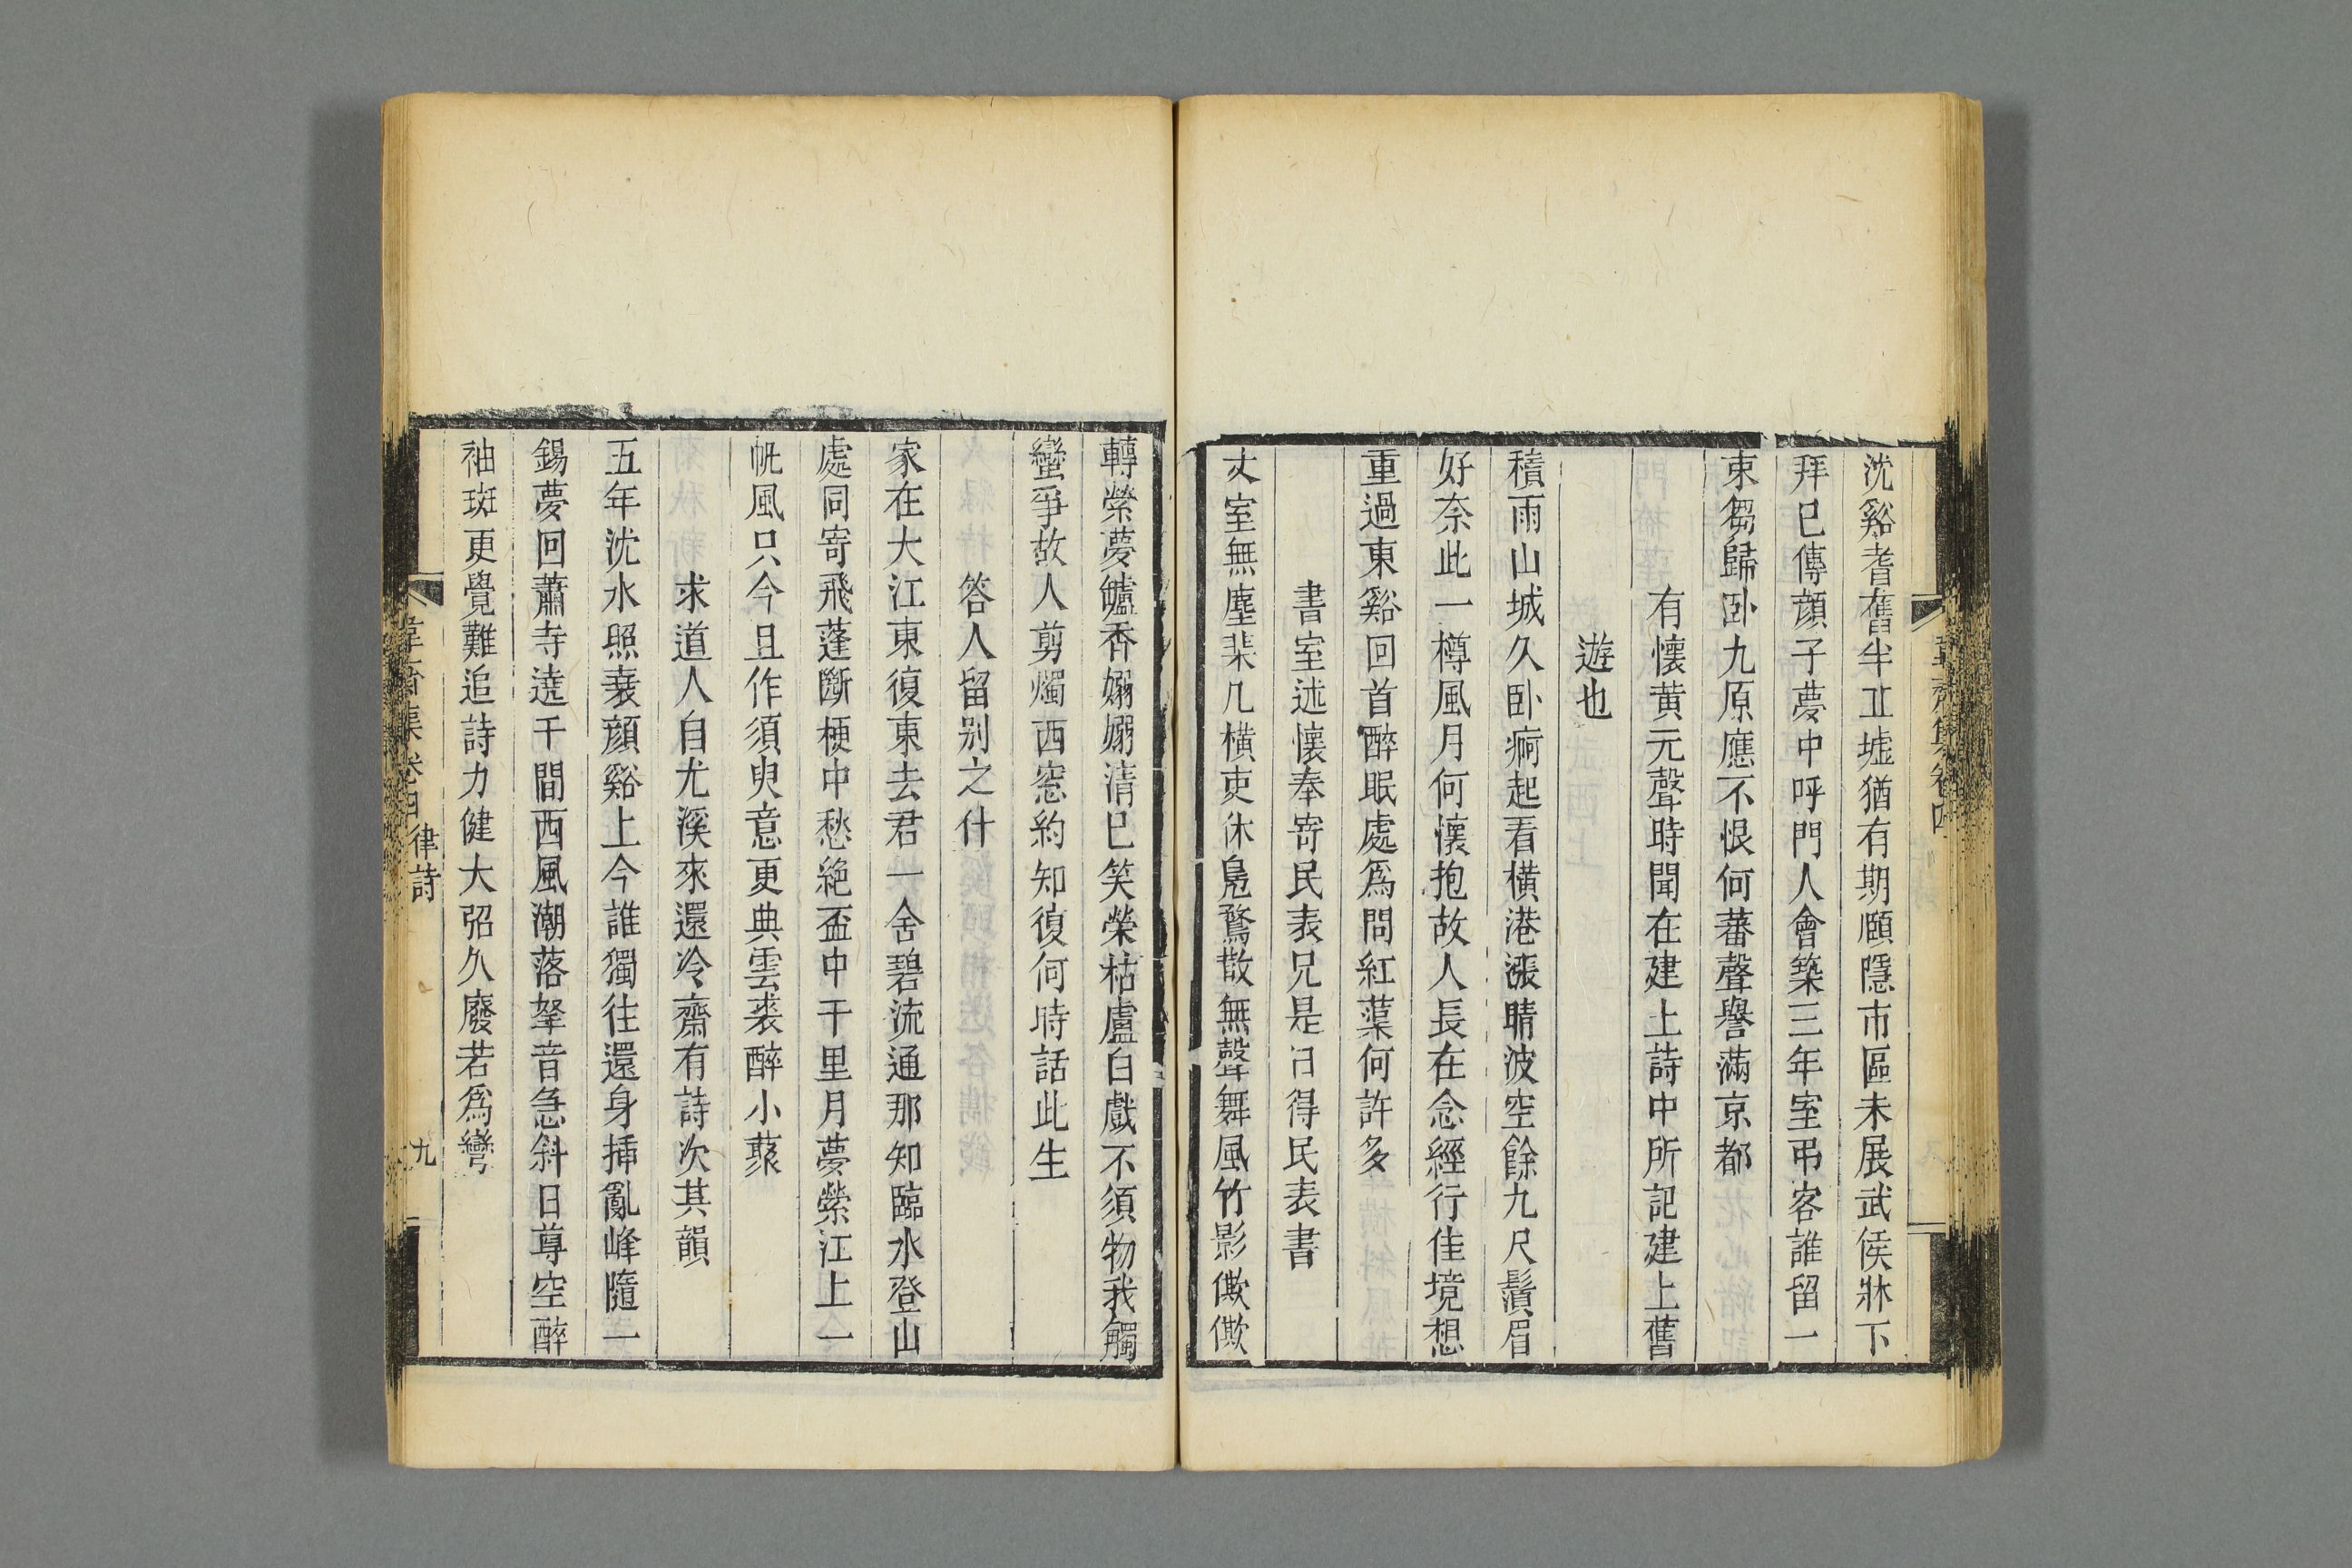 韋齋集卷四
沈谿耆舊半丘墟猶有期頤隱市區未展武侯牀下
拜已傳顔子夢中呼門人會築三年室弔客誰留一
束芻歸卧九原應不恨何蕃聲譽滿京都
有懷黄元聲時聞在建上詩中所記建上舊
遊也
積雨山城久卧痾起看橫港漲晴波空餘九尺鬚眉
好奈此一樽風月何懷抱故人長在念經行佳境想
重過東谿回首醉眠處爲問紅蕖何許多
書室述懷奉寄民表兄是日得民表書
丈室無塵棐几橫吏休鳬鶩散無聲舞風竹影僛僛
轉縈夢鑪香嫋嫋清已笑榮枯盧白戲不須物我觸
蠻爭故人剪燭西窓約知復何時話此生
答人留别之什
家在大江東復東去君一舍碧流通那知臨水登山
處同寄飛蓬斷梗中愁絶盃中千里月夢縈江上一
帆風只今且作須臾意更典雲裘醉小蘂
求道人自尤溪來還冷齋有詩次其韻
五年沈水照衰顔谿上今誰獨往還身插亂峰隨一
錫夢回蕭寺遶千間西風潮落拏音急斜日尊空醉
袖斑更覺難追詩力健大弨久廢若爲彎
韋齋集卷四
律詩
九